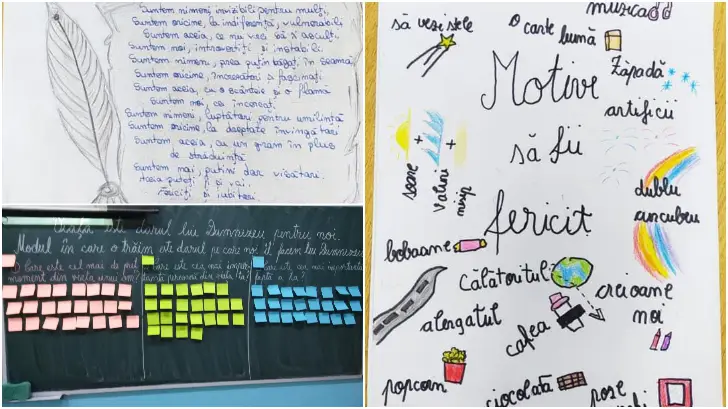 Suntem nimeni invizibili pentru mulți,
Suntem oricine, la indiferență, vulnerabili
Suntem aceia, ce nu vrei să-i asculți.
Suntem noi, introvertiți și instabili.
Suntem nimeni, prea puțin băgați în seamă,
Suntem oricine, încrezători și fascinați
Suntem aceia, cu o scânteie și o flamă
Suntem noi, ce
Suntem nimeni, luptători pentru umilință
Suntem oricine, la dreptate învingători
Suntem aceia, cu un gram în plus
de străduință
Suntem noi, puțini dar visători.
Aceia puteți fi și voi
Fericiți și iubitori
Viața este darul lui Dumnezeu pentru noi.
Modul în care o trăim este darul pe care noi îl facem lui Dumnezeu
Care este cel mai de preț
moment din viața unui om?
Care este cea mai impor-
tantă persoană din viața ta?
Care este cea mai importantă
faptă a ta?
muzica
să vezi stele
o carte bună
Zăpadă
Motive
artificii
să fii
soare + valuri + nisip
dublu
curcubeu
fericit
boboane
călătoritul
creioane
noi
alergatul
cafea
popcorn
ciocolată
poze